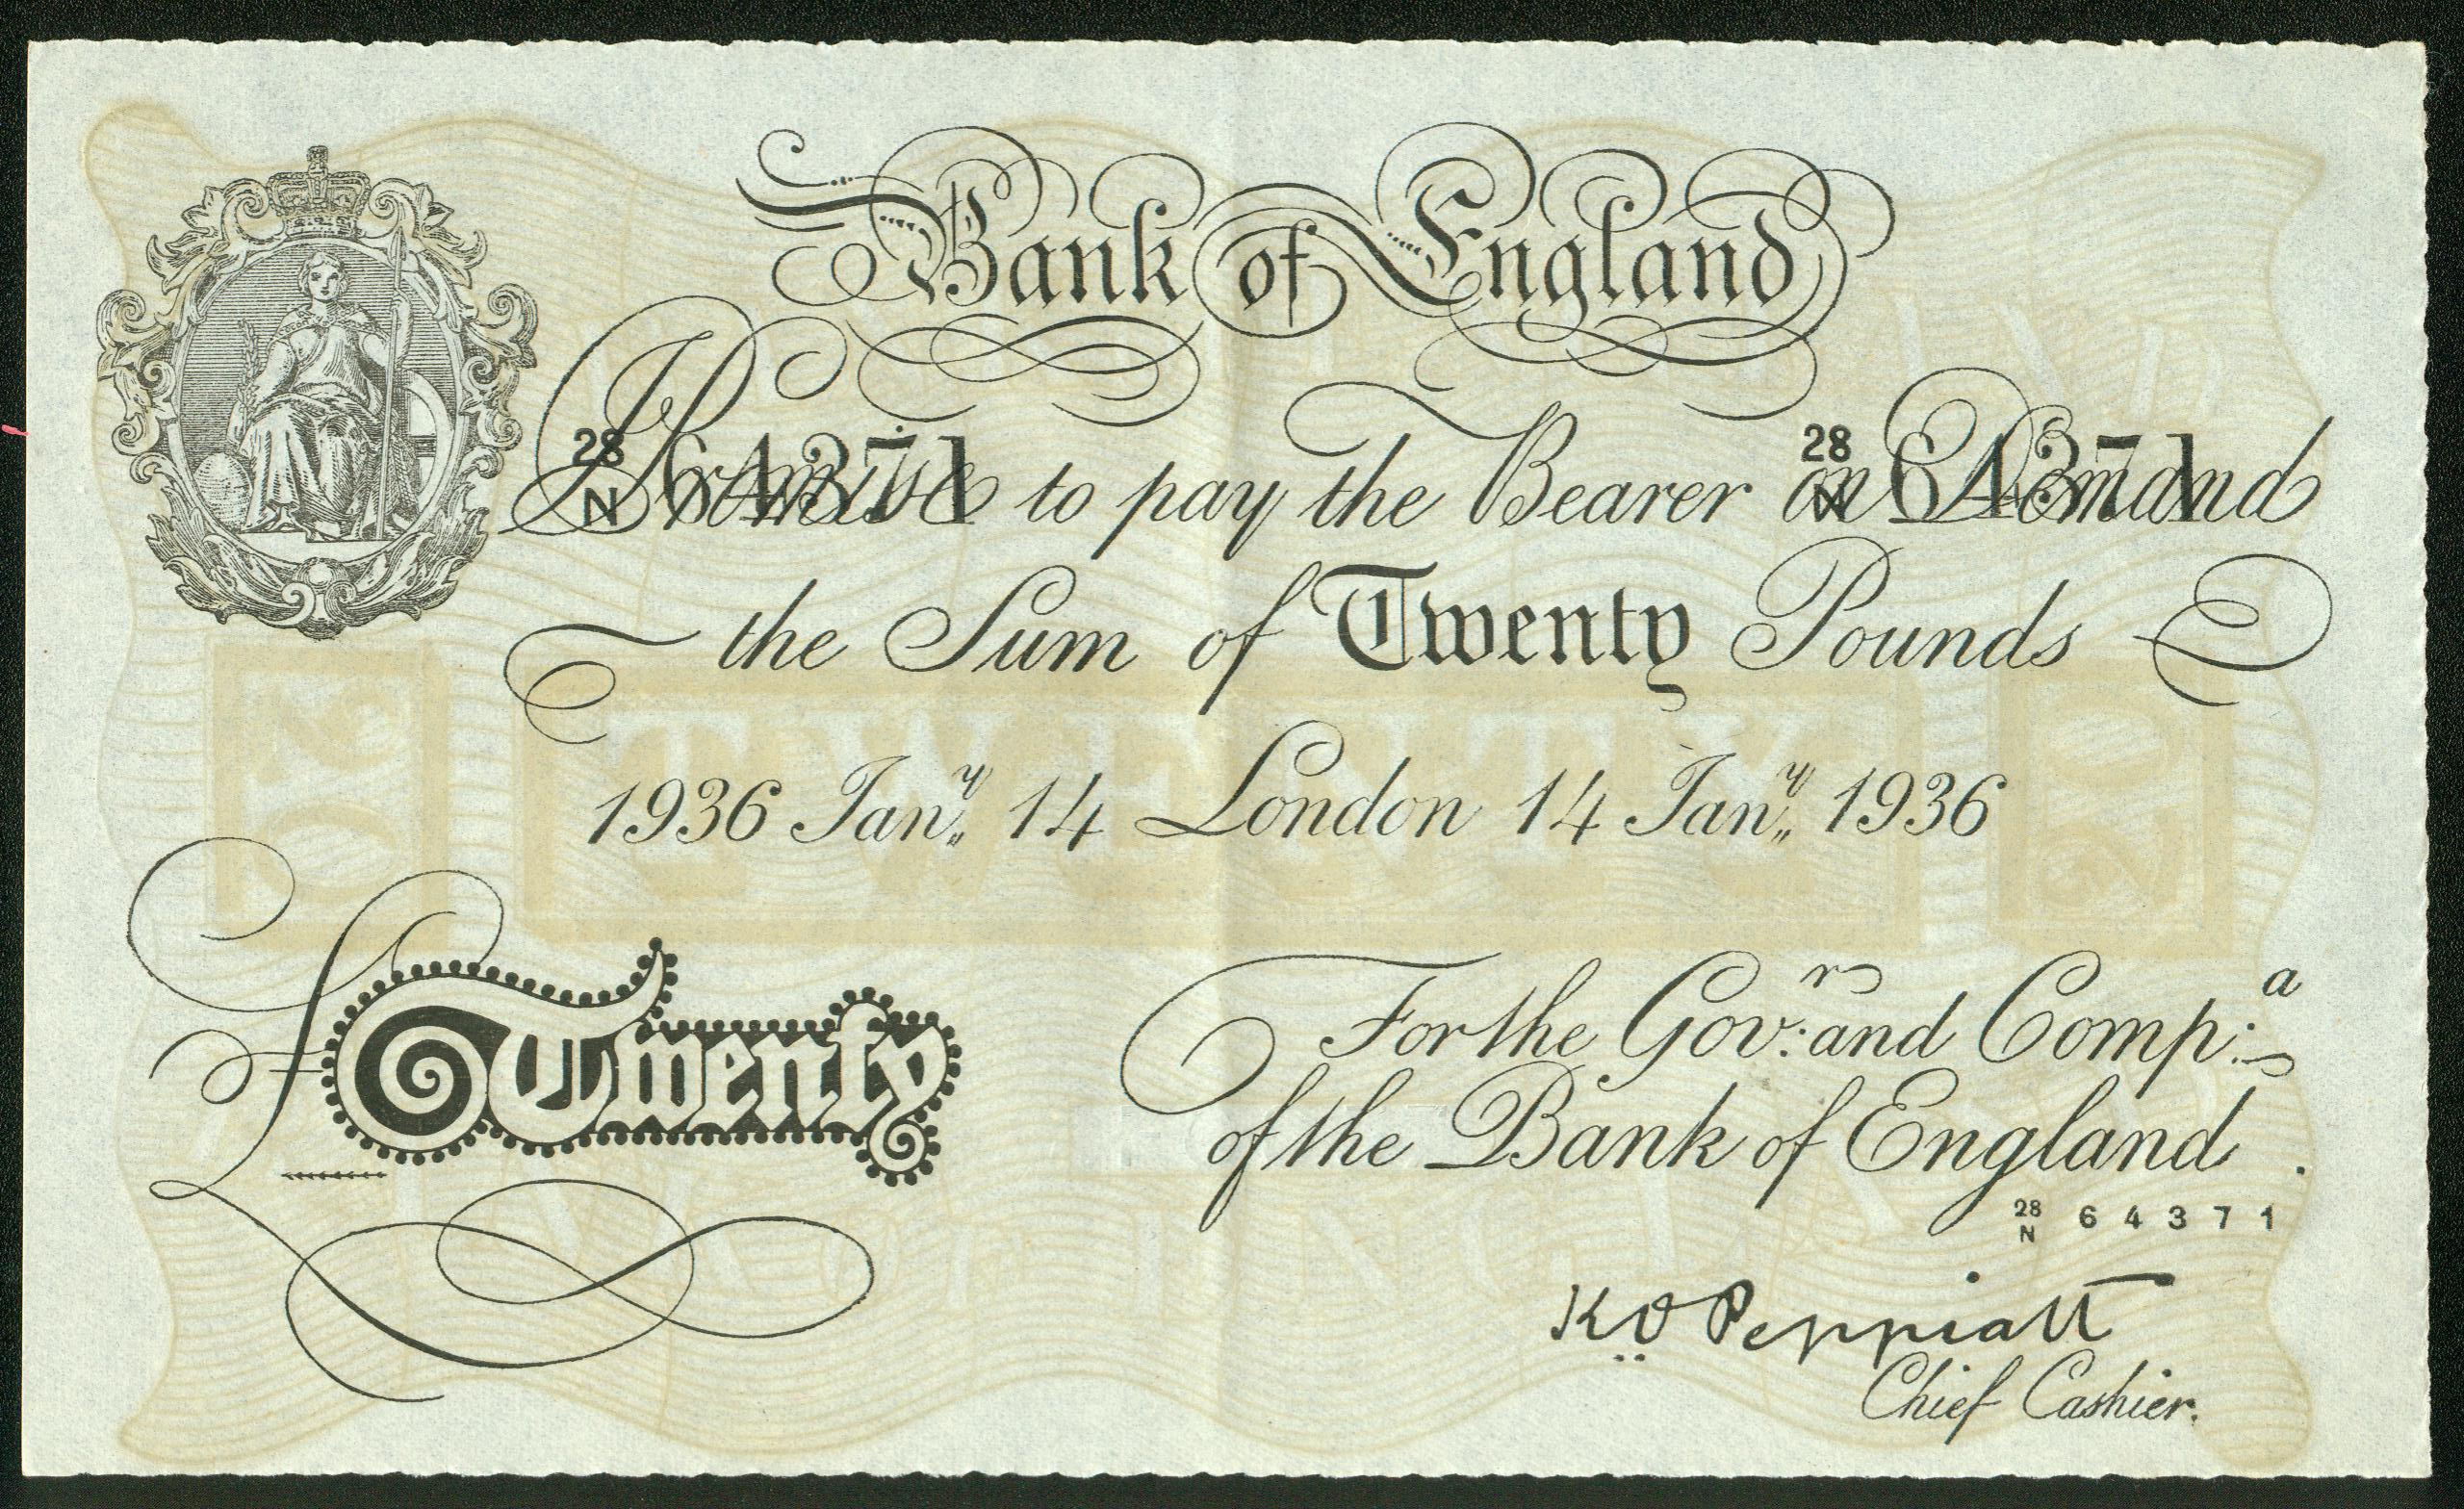 Bank of England
28 N 64371 28 N 64371
Promise to pay the Bearer on Demand
the Sum of Twenty Pounds
TWENTY
1936 Jany 14 London 14 Jany 1936
£Twenty
For the Govr: and Compa:
of the Bank of England.
28 N 64371
K O Peppiatt
Chief Cashier.